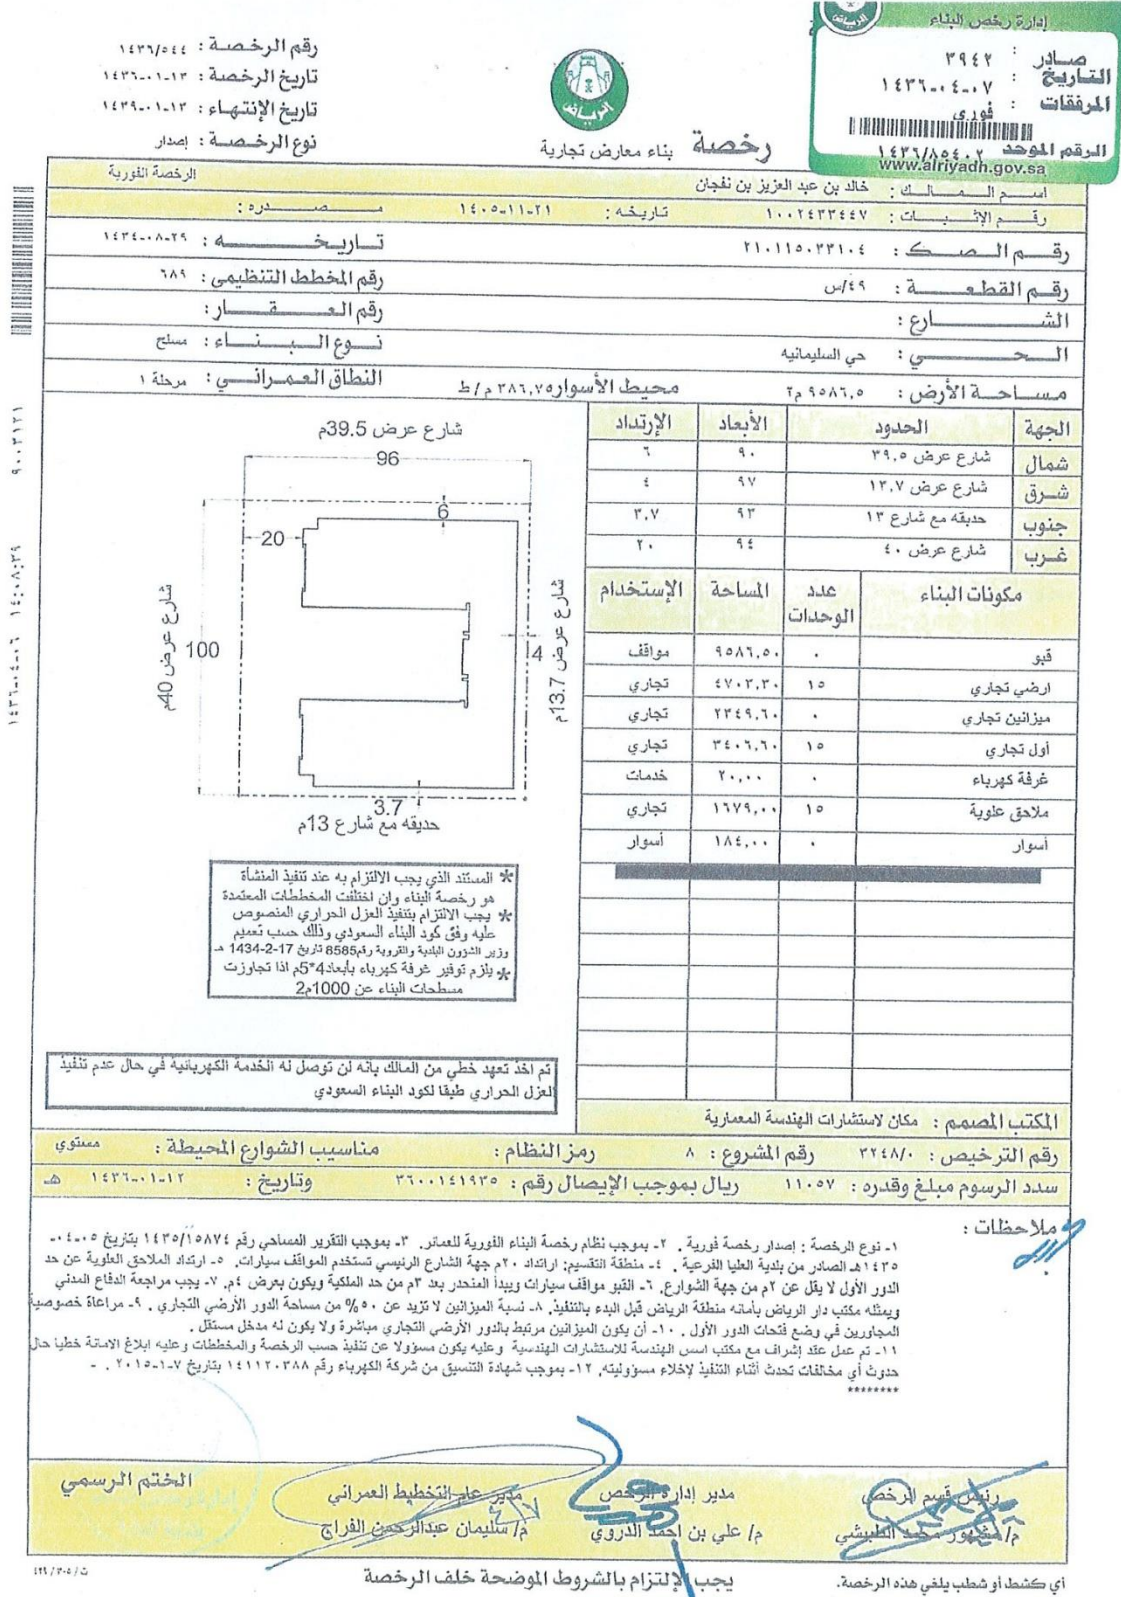 إدارة رخص البناء
صادر : ٣٩٤٢
التاريخ : ١٤٣٦-٠٤-٠٧
المرفقات : فوري
الرقم الموحد ١٤٣٦/٨٥٤٠٢
www.alriyadh.gov.sa
رقم الرخصة : ١٤٣٦/٥٤٤
تاريخ الرخصة : ١٤٣٦-٠١-١٣
تاريخ الإنتهاء : ١٤٣٩-٠١-١٣
نوع الرخصة : إصدار
الرياض
رخصة بناء معارض تجارية
اسم المالك : خالد بن عبد العزيز بن نفجان الرخصة الفورية
رقم الإثبات : ١٠٠٢٤٣٣٤٤٧ تاريخه : ١٤٠٥-١١-٢١ مصدره :
رقم الصك : ٢١٠١١٥٠٣٣١٠٤ تاريخه : ١٤٣٤-٠٨-٢٩
رقم القطعة : ٤٩/س رقم المخطط التنظيمى : ٦٨٩
الشارع : رقم العقار :
الحي : حي السليمانيه نوع البناء : مسلح
مساحة الأرض : ٩٥٨٦,٥ م٢ محيط الأسوار ٣٨٦,٧٥ م/ط النطاق العمراني : مرحلة ١
الجهة الحدود الأبعاد الإرتداد
شمال شارع عرض ٣٩,٥ ٩٠ ٦
شرق شارع عرض ١٣,٧ ٩٧ ٤
جنوب حديقه مع شارع ١٣ ٩٣ ٣,٧
غرب شارع عرض ٤٠ ٩٤ ٢٠
مكونات البناء عدد الوحدات المساحة الإستخدام
قبو ٠ ٩٥٨٦,٥٠ مواقف
ارضي تجاري ١٥ ٤٧٠٣,٣٠ تجاري
ميزانين تجاري ٠ ٢٣٤٩,٦٠ تجاري
أول تجاري ١٥ ٣٤٠٦,٦٠ تجاري
غرفة كهرباء ٠ ٢٠,٠٠ خدمات
ملاحق علوية ١٥ ١٦٧٩,٠٠ تجاري
أسوار ٠ ١٨٤,٠٠ أسوار
شارع عرض 39.5م
96
6
20
شارع عرض 40م
100
4
شارع عرض 13.7م
3.7
حديقه مع شارع 13م
* المستند الذي يجب الالتزام به عند تنفيذ المنشأة
هو رخصة البناء وان اختلفت المخططات المعتمدة
* يجب الالتزام بتنفيذ العزل الحراري المنصوص
عليه وفق كود البناء السعودي وذلك حسب تعميم
وزير الشؤون البلدية والقروية رقم8585 تاريخ 17-2-1434 هـ
* يلزم توفير غرفة كهرباء بأبعاد4*5م اذا تجاوزت
مسطحات البناء عن 1000م2
تم اخذ تعهد خطي من المالك بانه لن توصل له الخدمة الكهربائية في حال عدم تنفيذ
العزل الحراري طبقا لكود البناء السعودي
١٤٣٦-٠٤-٠٦ ١٤:٠٨:٣٩ ٩٠٠٣١٣١
المكتب المصمم : مكان لاستشارات الهندسة المعمارية
رقم الترخيص : ٣٢٤٨/٠ رقم المشروع : ٨ رمز النظام : مناسيب الشوارع المحيطة : مستوي
سدد الرسوم مبلغ وقدره : ١١٠٥٧ ريال بموجب الإيصال رقم : ٣٦٠٠١٤١٩٣٥ وتاريخ : ١٤٣٦-٠١-١٢ هـ
ملاحظات :
١- نوع الرخصة : إصدار رخصة فورية . ٢- بموجب نظام رخصة البناء الفورية للعمائر. ٣- بموجب التقرير المساحي رقم ١٤٣٥/١٥٨٧٤ بتاريخ ٠٥-٠٤-
١٤٣٥هـ الصادر من بلدية العليا الفرعية . ٤- منطقة التقسيم: ارتداد ٢٠م جهة الشارع الرئيسي تستخدم المواقف سيارات. ٥- ارتداد الملاحق العلوية عن حد
الدور الأول لا يقل عن ٢م من جهة الشوارع. ٦- القبو مواقف سيارات ويبدأ المنحدر بعد ٣م من حد الملكية ويكون بعرض ٤م. ٧- يجب مراجعة الدفاع المدني
ويمثله مكتب دار الرياض بأمانه منطقة الرياض قبل البدء بالتنفيذ. ٨- نسبة الميزانين لا تزيد عن ٥٠% من مساحة الدور الأرضي التجاري . ٩- مراعاة خصوصية
المجاورين في وضع فتحات الدور الأول . ١٠- أن يكون الميزانين مرتبط بالدور الأرضي التجاري مباشرة ولا يكون له مدخل مستقل .
١١- تم عمل عقد إشراف مع مكتب اسس الهندسة للاستشارات الهندسية وعليه يكون مسؤولا عن تنفيذ حسب الرخصة والمخططات وعليه ابلاغ الامانة خطيا حال
حدوث أي مخالفات تحدث أثناء التنفيذ لإخلاء مسؤوليته. ١٢- بموجب شهادة التنسيق من شركة الكهرباء رقم ١٤١١٢٠٣٨٨ بتاريخ ٧-١-٢٠١٥ . -
********
رئيس قسم الرخص مدير إدارة الرخص مدير عام التخطيط العمراني الختم الرسمي
م/ مشهور محمد الطبيشي م/ علي بن احمد الدروي م/ سليمان عبدالرحمن الفراج
أي كشط أو شطب يلغي هذه الرخصة. يجب الإلتزام بالشروط الموضحة خلف الرخصة